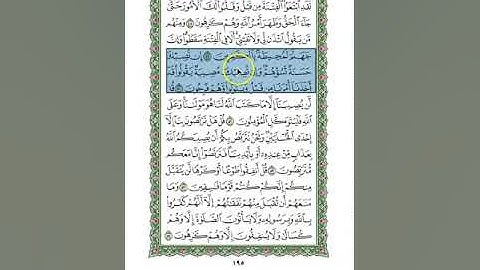 لَقَدِ ٱبْتَغَوُا۟ ٱلْفِتْنَةَ مِن قَبْلُ وَقَلَّبُوا۟ لَكَ ٱلْأُمُورَ حَتَّىٰ
جَآءَ ٱلْحَقُّ وَظَهَرَ أَمْرُ ٱللَّهِ وَهُمْ كَٰرِهُونَ ٤٨ وَمِنْهُم
مَّن يَقُولُ ٱئْذَن لِّى وَلَا تَفْتِنِّىٓ أَلَا فِى ٱلْفِتْنَةِ سَقَطُوا۟ وَإِنَّ
جَهَنَّمَ لَمُحِيطَةٌۢ إِن تُصِبْكَ
حَسَنَةٌ تَسُؤْهُمْ وَإِن تُصِبْكَ مُصِيبَةٌ يَقُولُوا۟ قَدْ
أَخَذْنَآ أَمْرَنَا مِن قَبْلُ وَيَتَوَلَّوا۟ وَّهُمْ فَرِحُونَ ٥٠ قُل
لَّن يُصِيبَنَآ إِلَّا مَا كَتَبَ ٱللَّهُ لَنَا هُوَ مَوْلَىٰنَا وَعَلَى
ٱللَّهِ فَلْيَتَوَكَّلِ ٱلْمُؤْمِنُونَ ٥١ قُلْ هَلْ تَرَبَّصُونَ بِنَآ إِلَّآ
إِحْدَى ٱلْحُسْنَيَيْنِ وَنَحْنُ نَتَرَبَّصُ بِكُمْ أَن يُصِيبَكُمُ ٱللَّهُ
بِعَذَابٍ مِّنْ عِندِهِۦٓ أَوْ بِأَيْدِينَا فَتَرَبَّصُوٓا۟ إِنَّا مَعَكُم
مُّتَرَبِّصُونَ ٥٢ قُلْ أَنفِقُوا۟ طَوْعًا أَوْ كَرْهًا لَّن يُتَقَبَّلَ
مِنكُمْ إِنَّكُمْ كُنتُمْ قَوْمًا فَٰسِقِينَ ٥٣ وَمَا
مَنَعَهُمْ أَن تُقْبَلَ مِنْهُمْ نَفَقَٰتُهُمْ إِلَّآ أَنَّهُمْ كَفَرُوا۟
بِٱللَّهِ وَبِرَسُولِهِۦ وَلَا يَأْتُونَ ٱلصَّلَوٰةَ إِلَّا وَهُمْ
كُسَالَىٰ وَلَا يُنفِقُونَ إِلَّا وَهُمْ كَٰرِهُونَ ٥٤
١٩٥